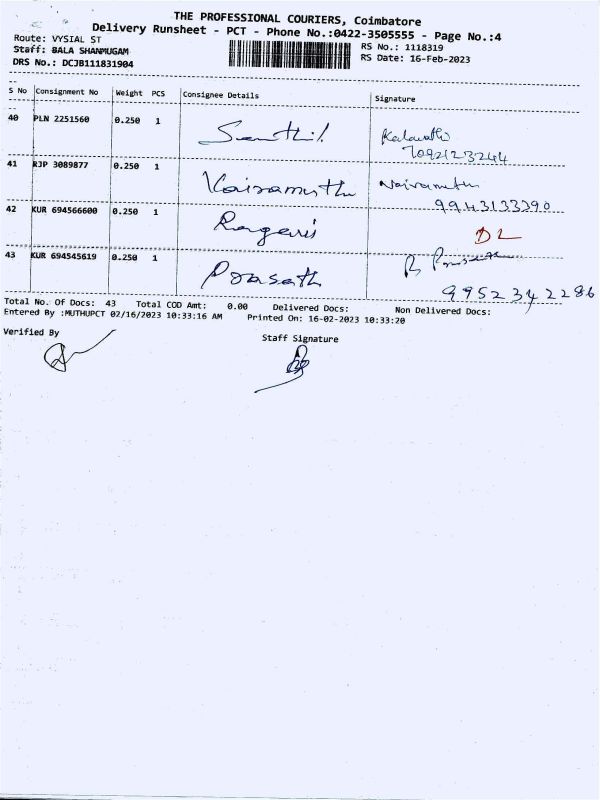 THE PROFESSIONAL COURIERS, Coimbatore
Delivery Runsheet - PCT - Phone No.:0422-3505555 - Page No.:4
Route: VYSIAL ST
RS No.: 1118319
Staff: BALA SHANMUGAM
RS Date: 16-Feb-2023
DRS No.: DCJB111831904
S No Consignment No Weight PCS Consignee Details Signature
40 PLN 2251560 0.250 1 Senthil
41 RJP 3089877 0.250 1
9943133390
42 KUR 694566600 0.250 1
DL
43 KUR 694545619 0.250 1 Prasath
9952342286
Total No. Of Docs: 43 Total COD Amt: 0.00 Delivered Docs: Non Delivered Docs:
Entered By :MUTHUPCT 02/16/2023 10:33:16 AM Printed On: 16-02-2023 10:33:20
Verified By Staff Signature